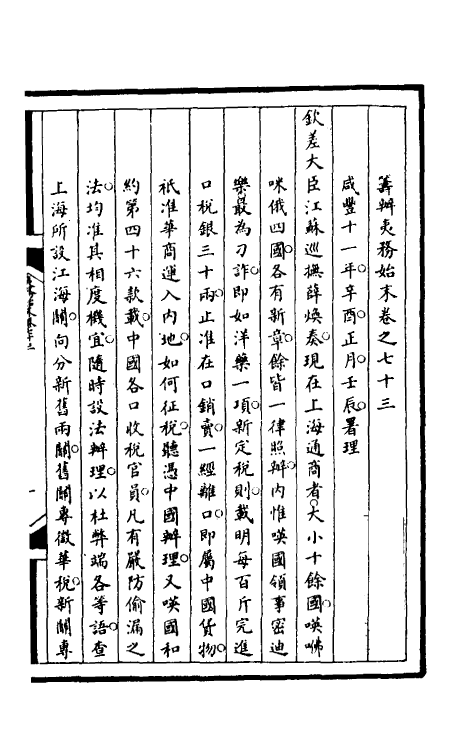 籌辦夷務始末卷之七十三
咸豐十一年。辛酉正月。壬辰。署理
欽差大臣江蘇巡撫薛煥奏。現在上海通商者。大小十餘國。𠸄咈
咪俄四國。各有新章。餘皆一律照辦。內惟𠸄國領事密迪
樂最為刁詐。即如洋藥一項。新定稅則。載明每百斤完進
口稅銀三十兩。止准在口銷賣。一經離口。即屬中國貨物。
祇准華商運入內地。如何征稅。聽憑中國辦理。又𠸄國和
約第四十六款。載中國各口收稅官員。凡有嚴防偷漏之
法。均准其相度機宜。隨時設法辦理。以杜弊端各等語。查
上海所設江海關。向分新舊兩關。舊關專徵華稅。新關專